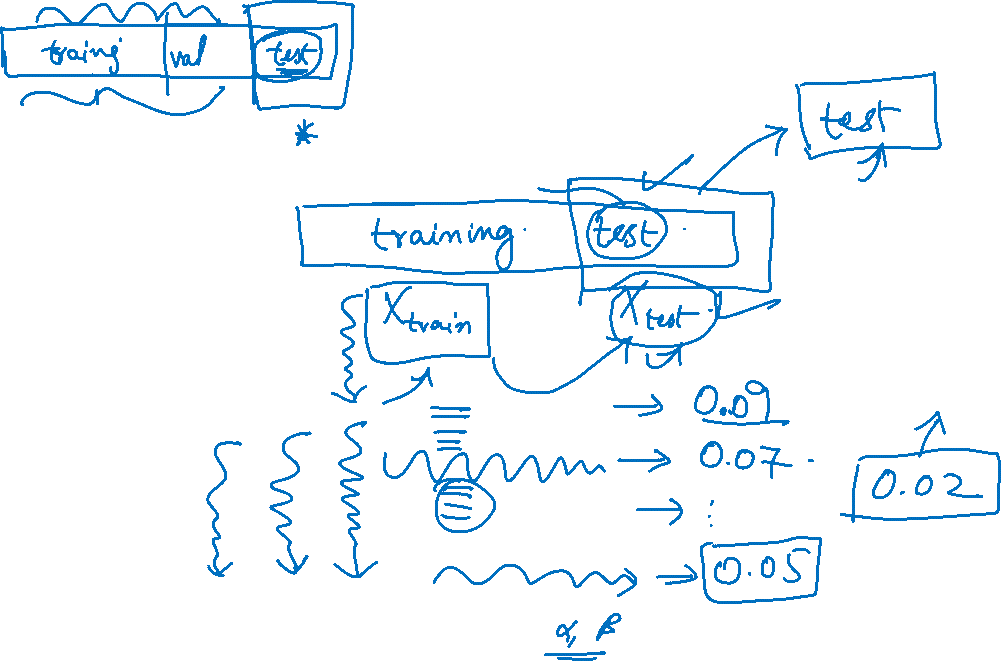 traing val test
*
test
training test
X train X test
→ 0.09
→ 0.07
→ ⋮
0.02
→ 0.05
α, β